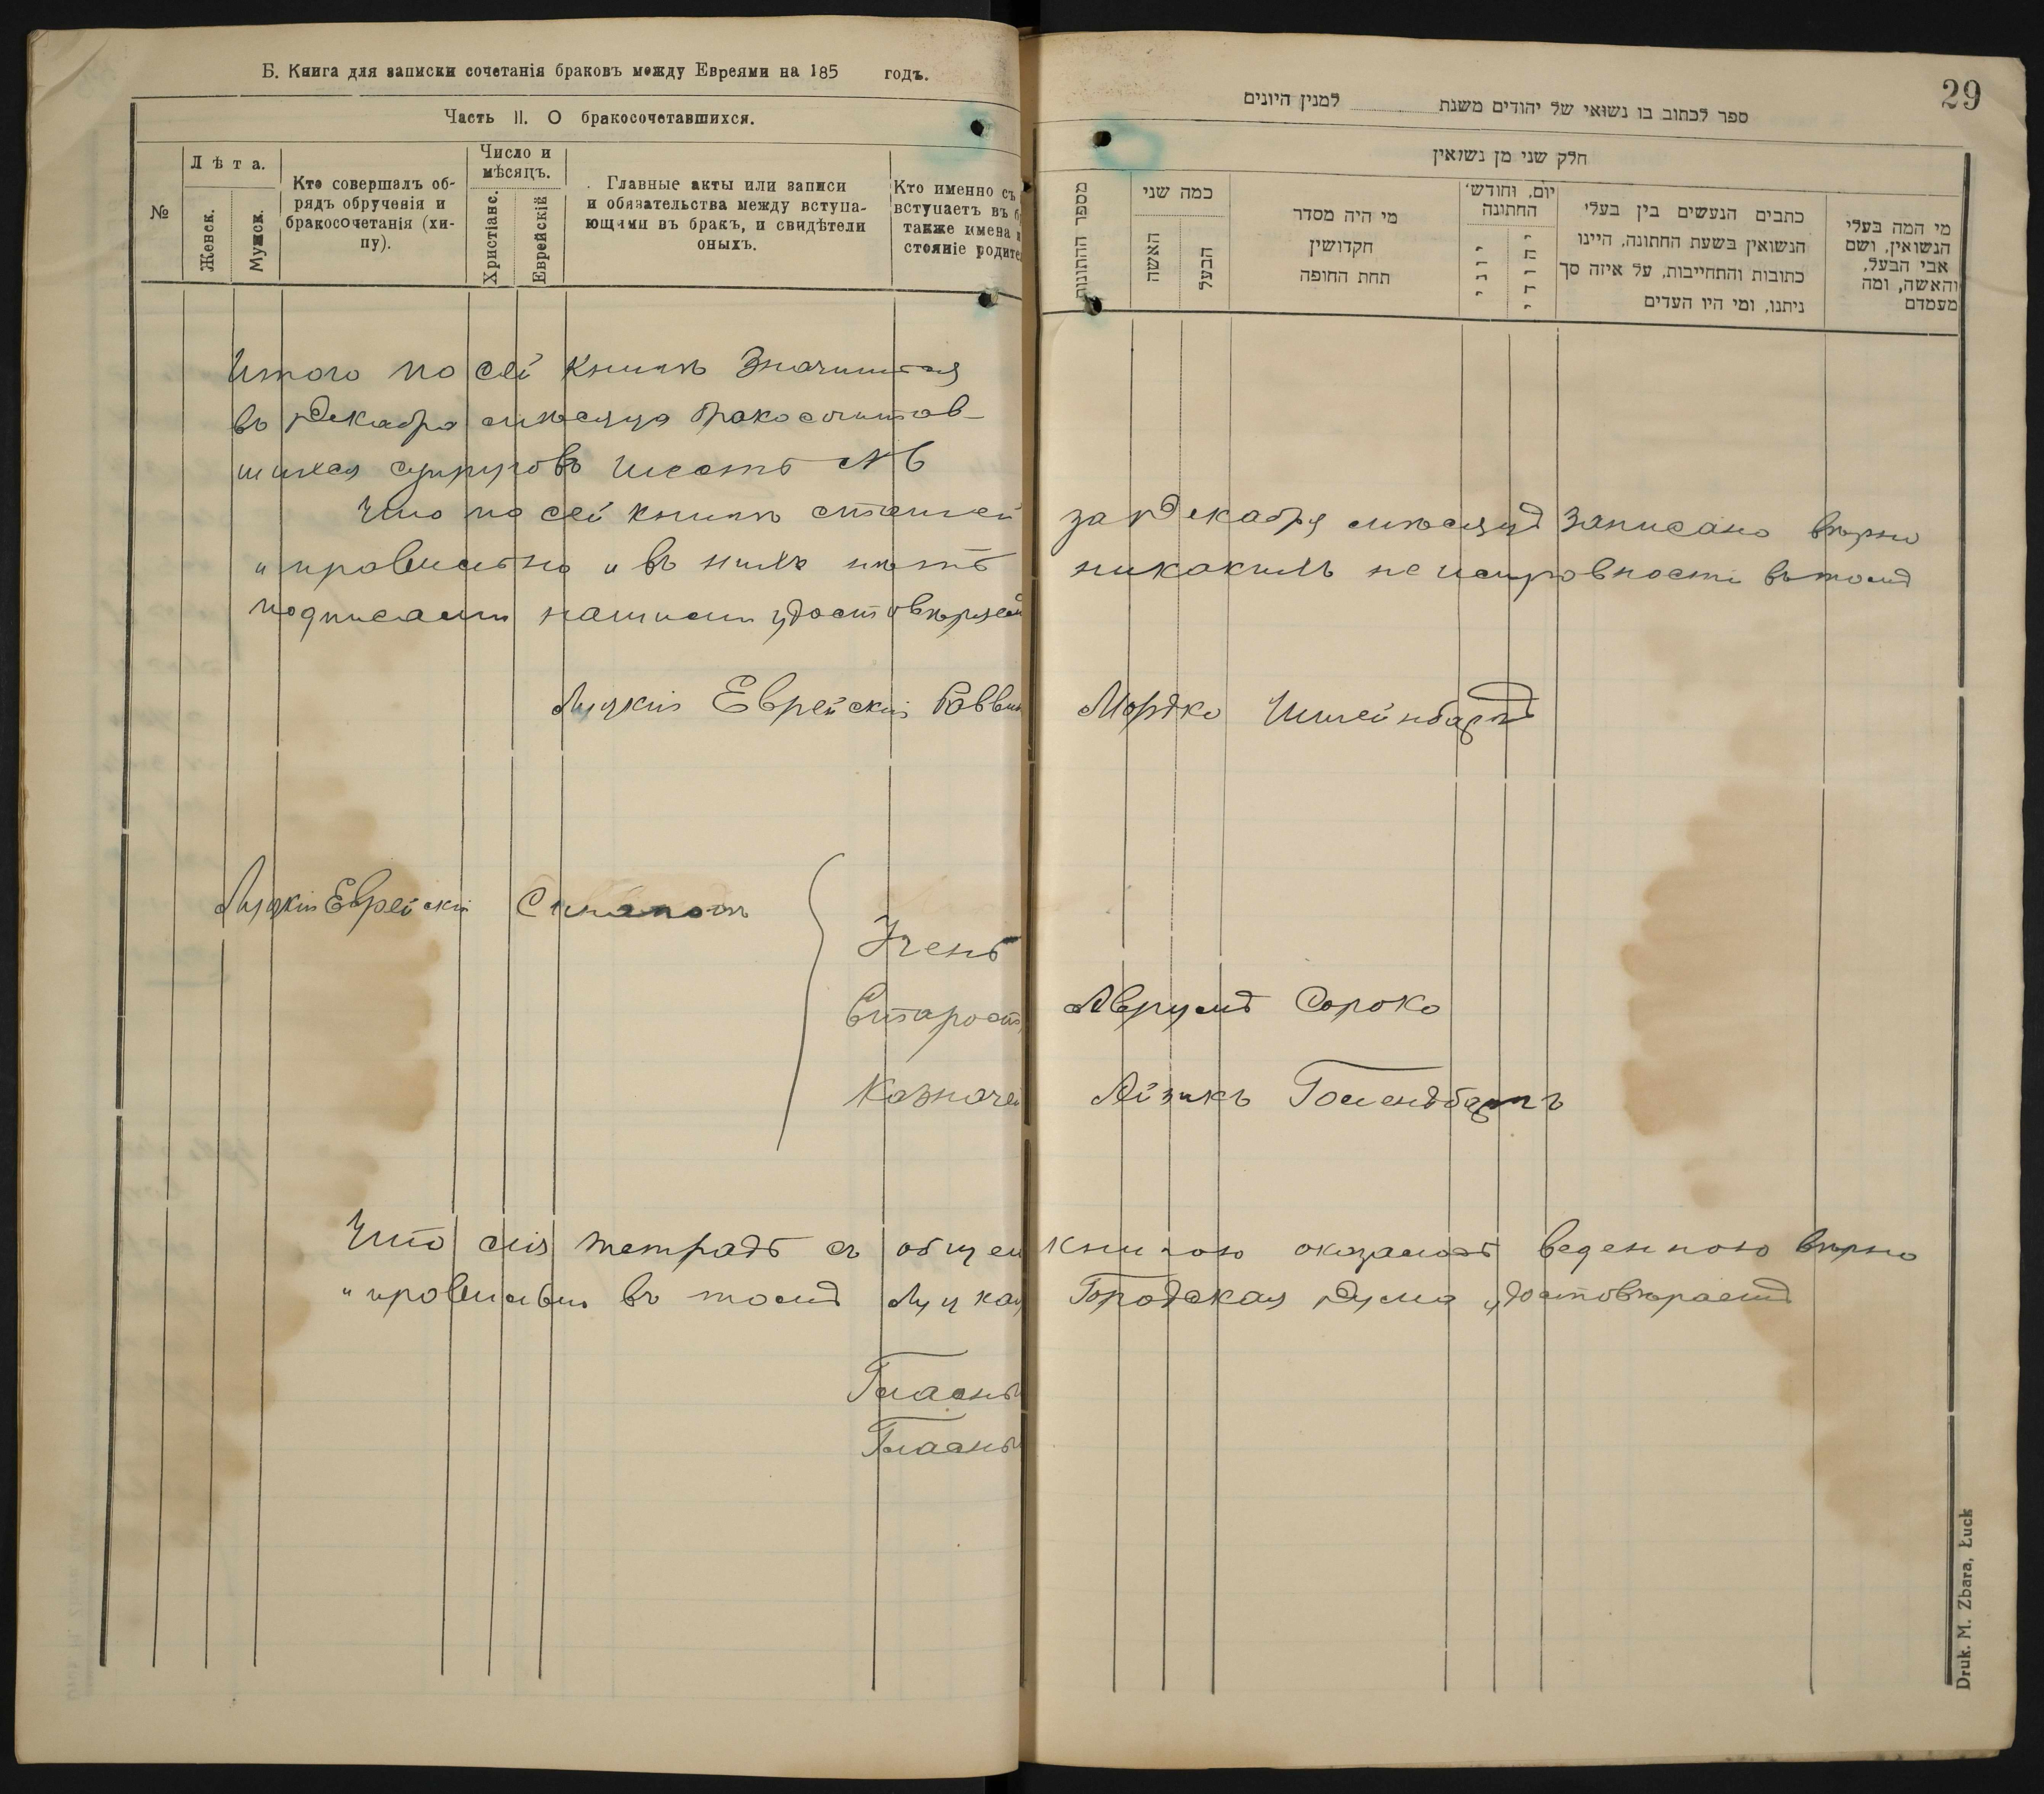 Б. Книга для записки сочетанія браковъ между Евреями на 185 годъ.
Часть II. О бракосочетавшихся.
№
Лѣта.
Женск.
Мужск.
Кто совершалъ об-
рядъ обрученія и
бракосочетанія (хи-
пу).
Число и
мѣсяцъ.
Христіанс.
Еврейскій
Главные акты или записи
и обязательства между вступа-
ющими въ бракъ, и свидѣтели
оныхъ.
Кто именно съ
вступаетъ въ б
также имена и
стояніе родите
Итого по сей книгѣ значится
въ Декабрѣ мѣсяцѣ бракосочитав-
шихся супруговъ шесть № 6
Что по сей книгѣ статей
и правильно и въ нихъ нѣтъ
подписами нашими удостовѣряем
Луцкій Еврейскій Раввин
Луцкій Еврейскій
Учены
Старост
Казначей
Что сія тетрадь съ общей
и правильно въ томъ Луцкая
Гласны
Гласны
29
ספר לכתוב בו נשואי של יהודים משנת למנין היונים
חלק שני מן נשואין
מספר החתונות
כמה שני
האשה
הבעל
מי היה מסדר
הקדושין
תחת החופה
יום, וחודש'
החתונה
יוני
יהודי
כתבים הנעשים בין בעלי
הנשואין בשעת החתונה, היינו
כתובות והתחייבות, על איזה סך
ניתנו, ומי היו העדים
מי המה בעלי
הנשואין, ושם
אבי הבעל,
והאשה, ומה
מעמדם
за Декабрь мѣсяцъ записано вѣрно
никакихъ неисправности въ томъ
Мордко Штейнбаргъ
Аврумъ Сороко
Айзикъ Голендбаргъ
книгою оказалось веденною вѣрно
Городская Дума удостовѣраетъ
Druk. M. Zbara, Łuck